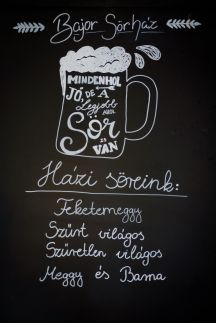 Bajor Sörház
MINDENHOL
JÓ, DE A
Legjobb
AHOL
SÖR
is
VAN
Házi söreink:
Feketemeggy
Szűrt világos
Szűretlen világos
Meggy és Barna